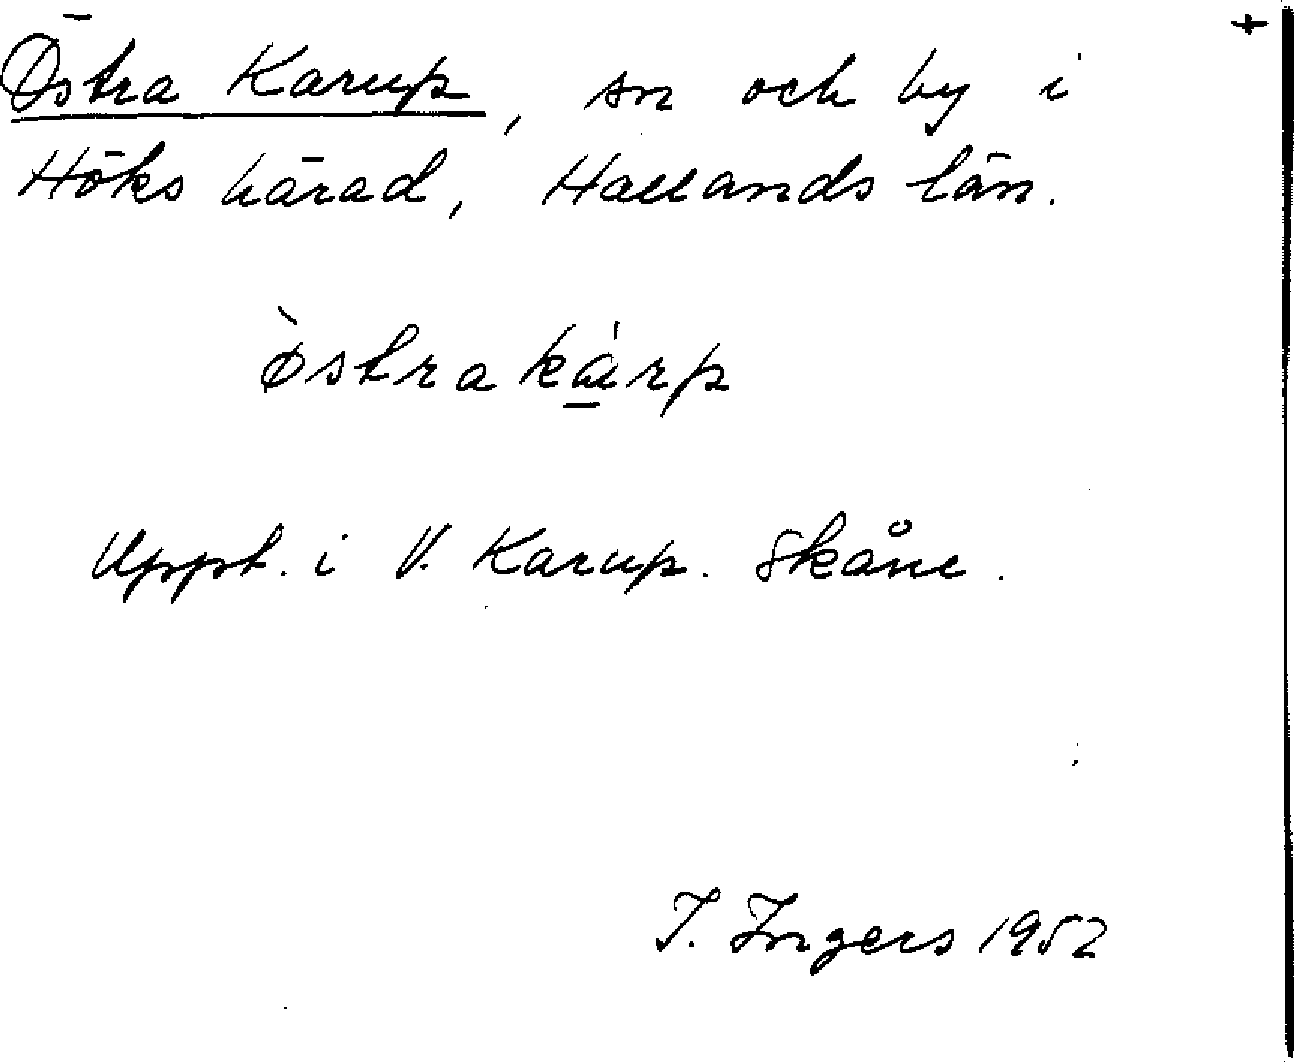 +
Östra Karup, sn och by i
Höks härad, Hallands län.
òstra ká̱rp
Uppt. i V. Karup. Skåne.
I. Ingers 1952